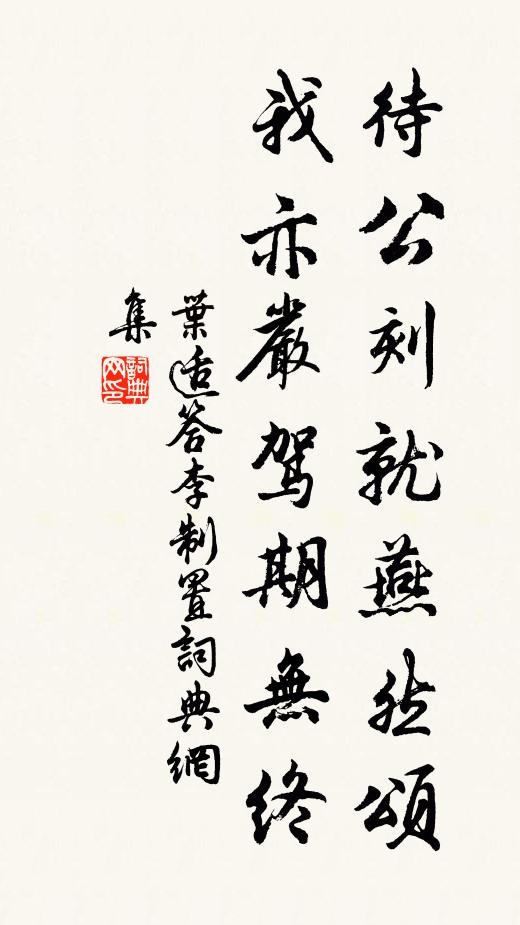 待公刻就燕然頌
我亦嚴駕期無終
葉適答李制置詞典網
集
詞典
网印